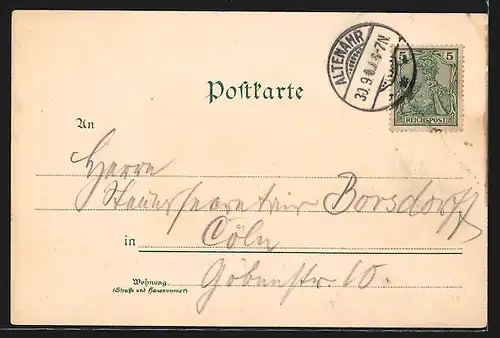 ALTENAHR
30.9.
6-7N
5 5
REICHSPOST
Postkarte
An
Herrn
Steuersecretair Borsdorff
in Cöln
Wohnung
(Straße und Hausnummer)
Göbenstr. 10.